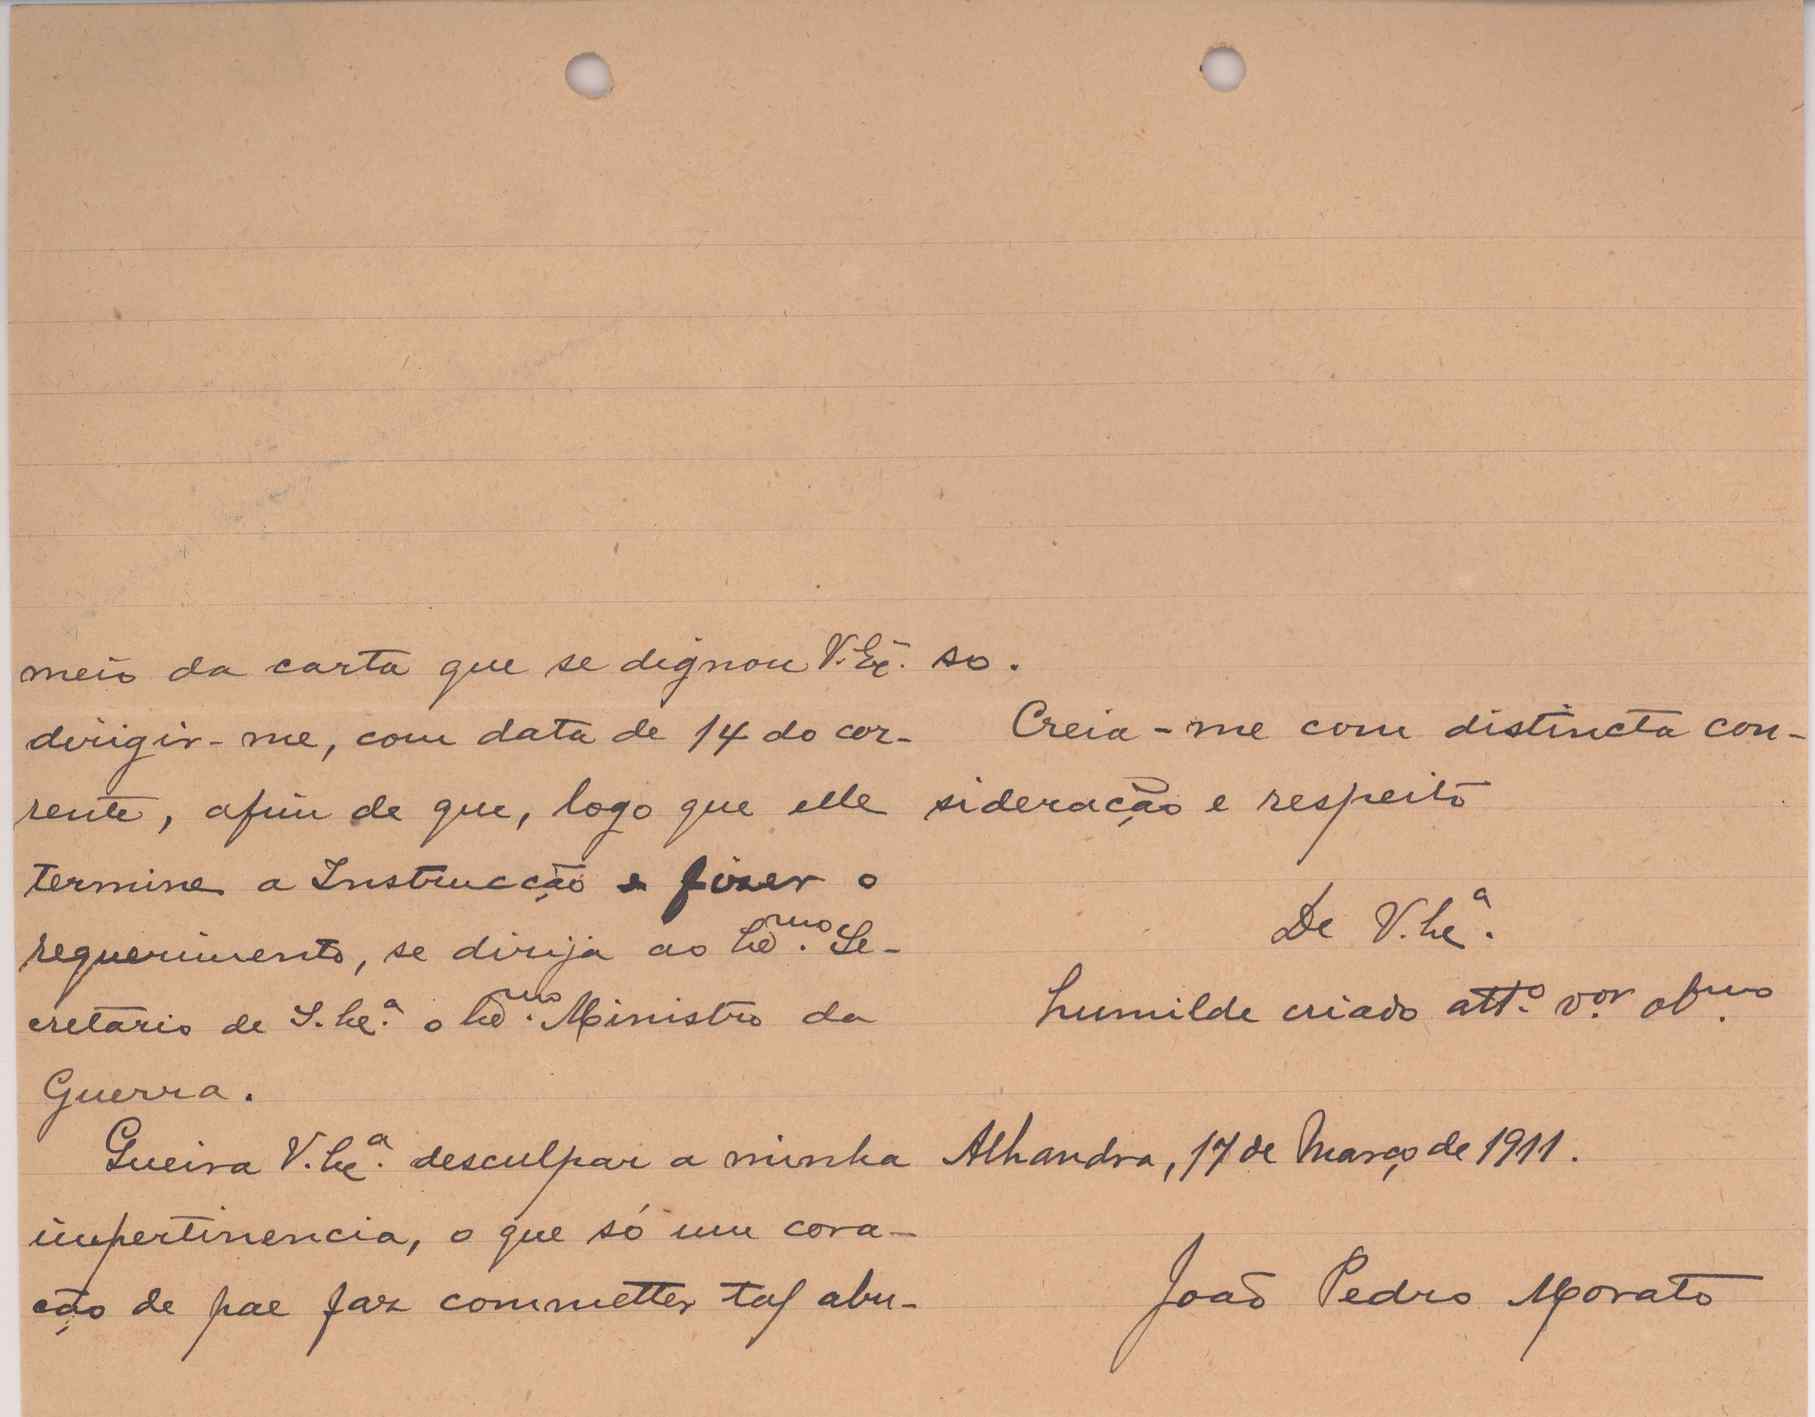 meio da carta que se dignou V. Ex.ª
dirigir-me, com data de 14 do cor-
rente, afim de que, logo que elle
termine a Instrucção e fizer o
requerimento, se dirija ao Ex.mo Se-
cretario de S. Ex.ª o Ex.mo Ministro da
Guerra.
Queira V. Ex.ª desculpar a minha
impertinencia, o que só um cora-
ção de pae faz commetter tal abu-
so.
Creia-me com distincta con-
sideração e respeito
De V. Ex.ª
humilde criado att.º v.or ob.mo
Alhandra, 17 de Março de 1911.
João Pedro Morato